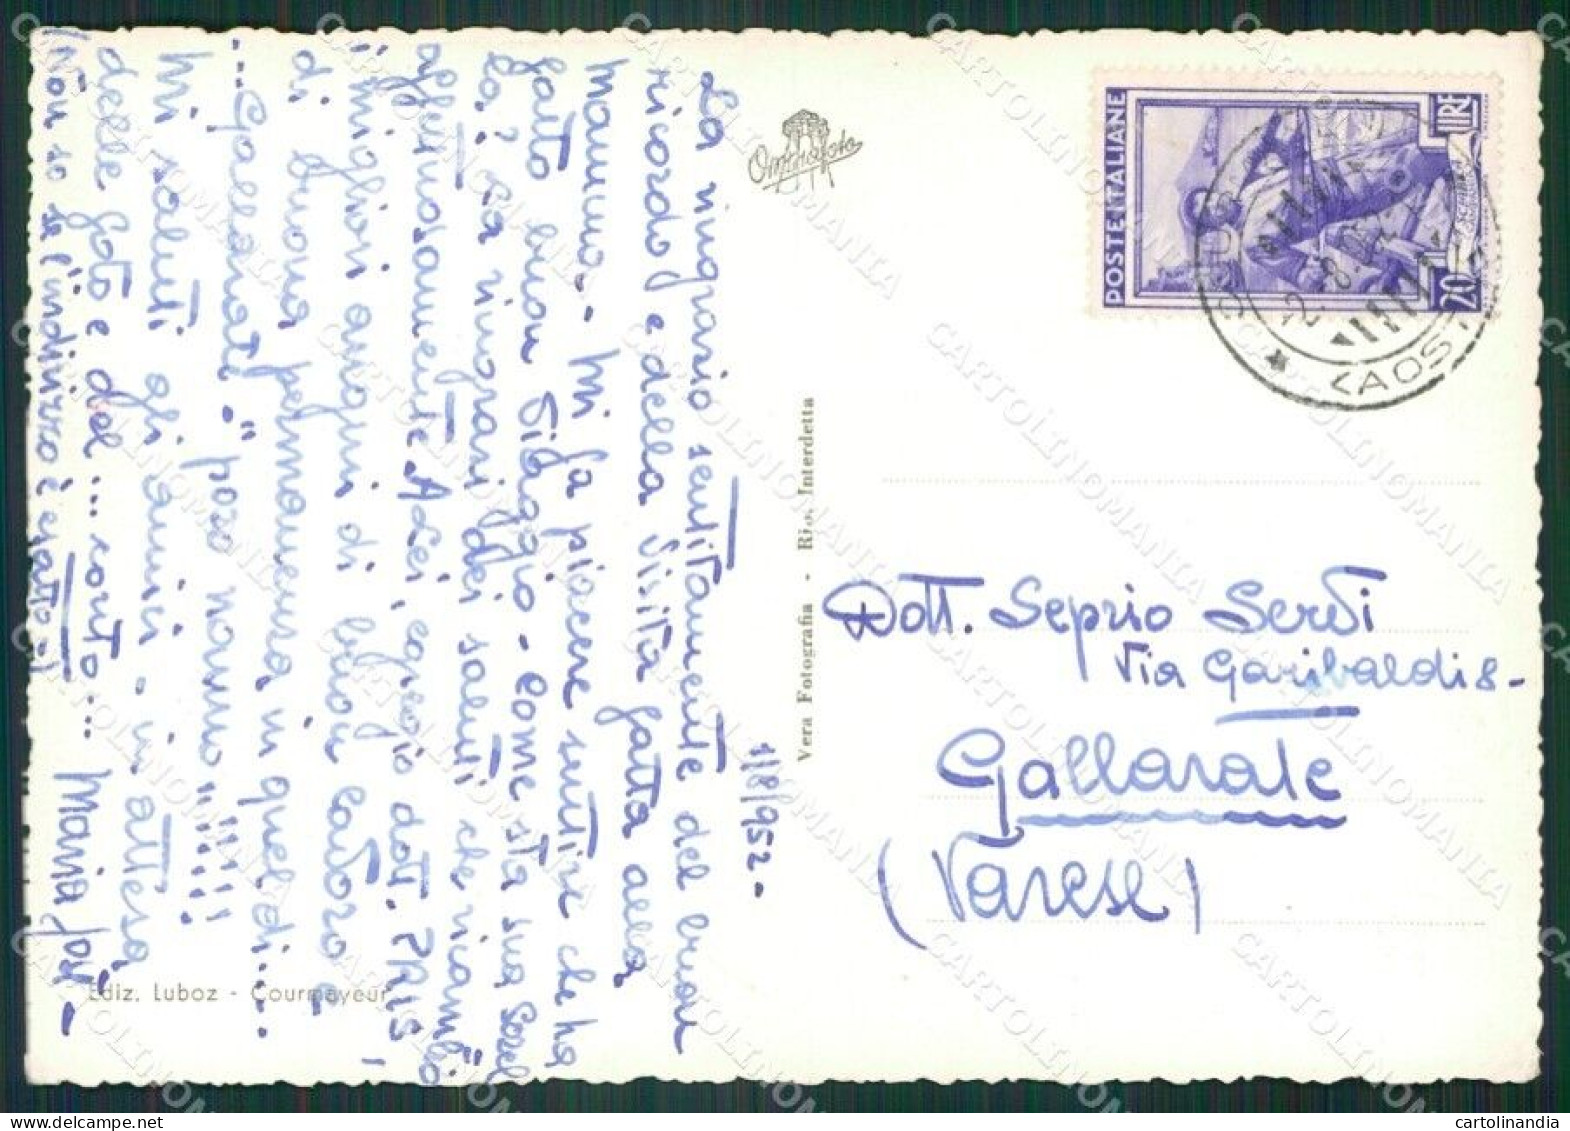 1/8/952-
La ringrazio sentitamente del buon
ricordo e della visita fatta alla
mamma. - Mi fa piacere sentire che ha
fatto buon viaggio - Come sta sua sorel
la? La ringrazi dei saluti che ricambio
affettuosamente. A Lei, egregio dott. PRIS,
i migliori auguri di buon lavoro e
di buona permanenza in quel di....
...Gallarate" pozo nanno"!!!!!
Mi saluti gli amici. in attesa
delle foto e del... conto... Maria
(Non so se l'indirizzo è esatto-)
Omniafoto
Vera Fotografia - Rip. Interdetta
Ediz. Luboz - Courmayeur
POSTE ITALIANE
LIRE
20
2.-8.
(AOS
Dott. Seprio Serdi
Via Garibaldi 8-
Gallarate
(Varese)
CARTOLINOMANIA
cartolinandia